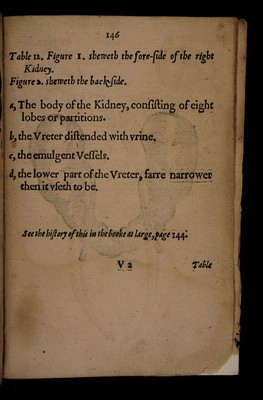 146
Table 12. Figure 1. sheweth the fore-ſide of the right
Kidney.
Figure 2. sheweth the back-ſide.
a, The body of the Kidney, conſiſting of eight
lobes or partitions.
b, the Vreter diſtended with vrine.
c, the emulgent Veſſels.
d, the lower part of the Vreter, farre narrower
then it vſeth to be.
See the hiſtory of this in the booke at large, page 144.
V 2 Table